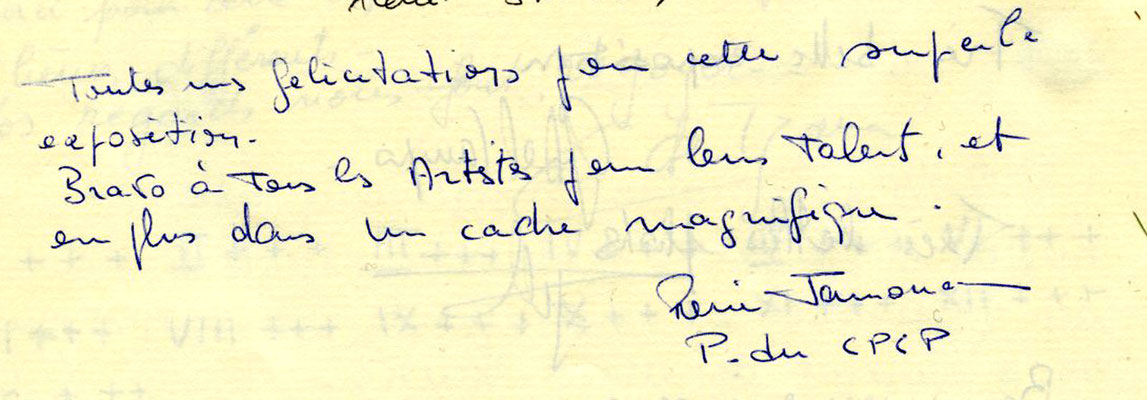 Toutes nos félicitations pour cette superbe
exposition.
Bravo à tous les Artistes pour leurs talent, et
en plus dans un cadre magnifique.
P. du CPCP